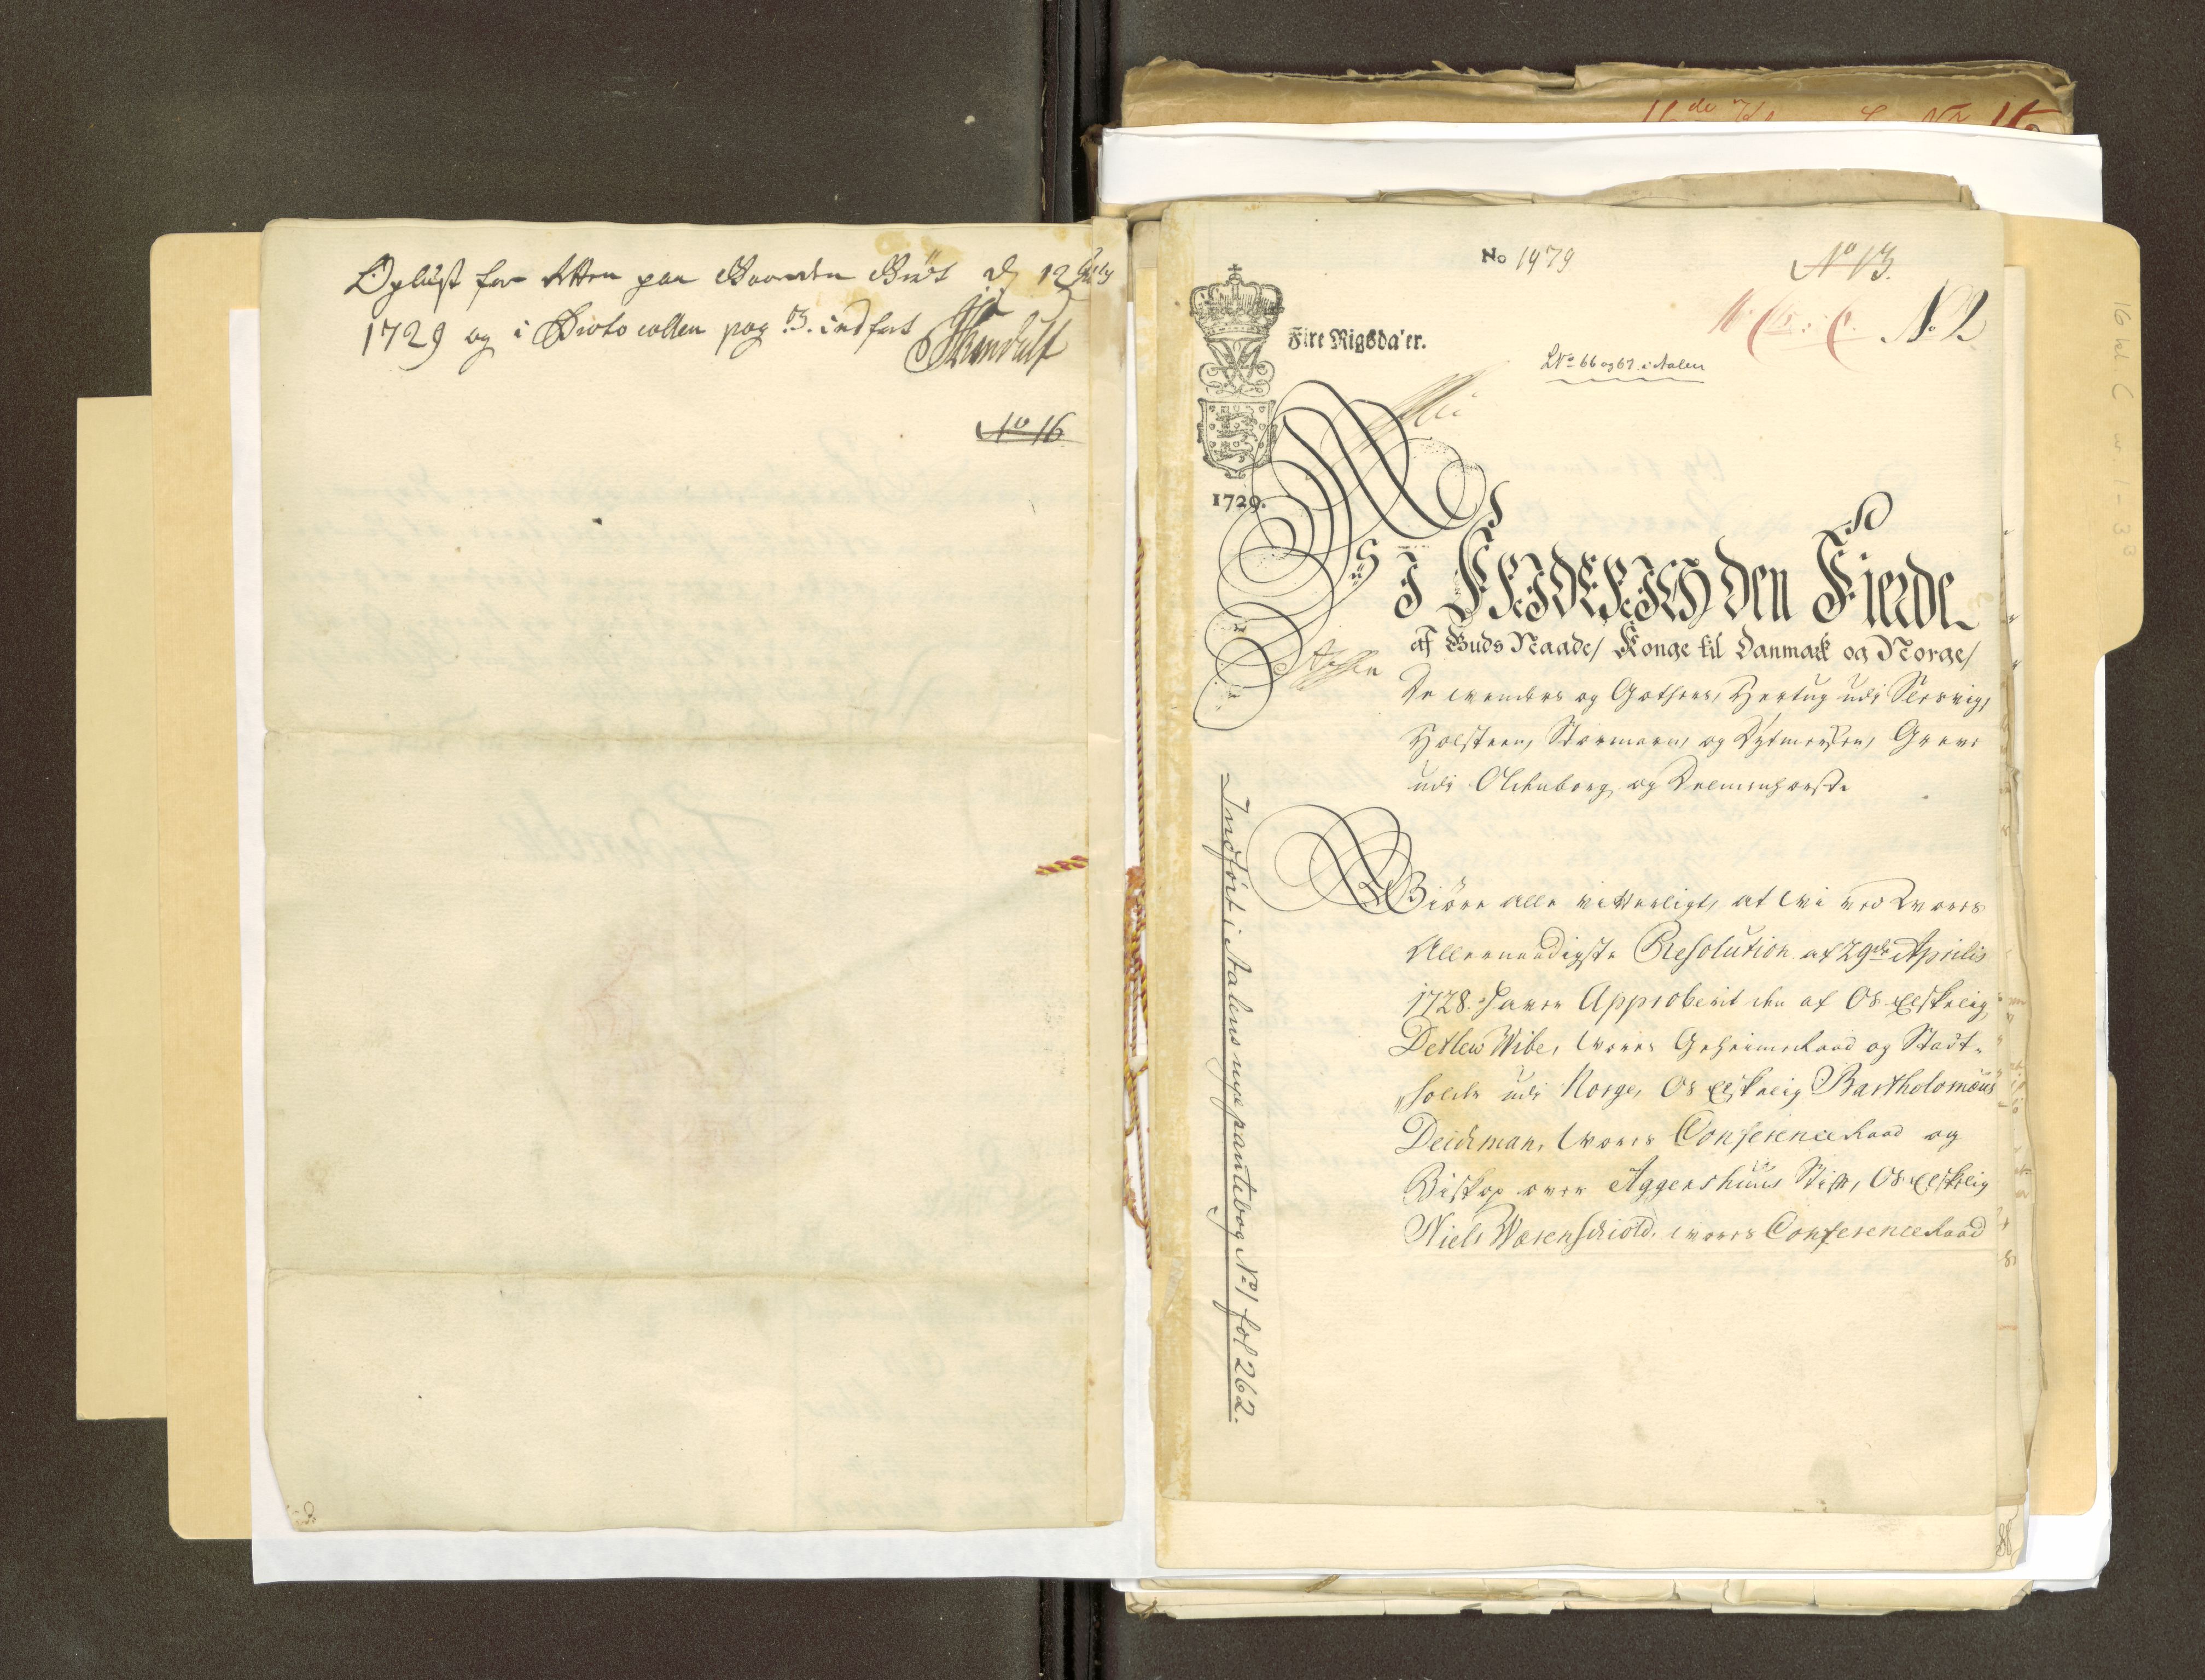 Oplæst for Retten paa Gaarden d. 12 July
1729 og i Protocollen pag: 3. indført
No 16
No 1979
No 13.
No 2
Fire Rigsda'er.
LNo 66 og 67 i Aalen
1729.
VI FRIDERICH den Fierde
af Guds Naade/ Konge til Danmark og Norge/
De Wenders og Gothers, Hertug udi Slesvig,
Holsteen, Stormarn, og Dytmersken, Greve
udi Oldenborg og Delmenhorst.
Giøre alle vitterligt, at Wi ved Vores
Allernaadigste Resolution af 29de Aprilis
1728. haver Approberit den af Os Elskelig
Detlew Wibe, Vores Geheimeraad og Stadt-
holder udi Norge, Os Elskelig Bartholomæus
Deichman, Vores Conferenceraad og
Biskop over Aggershuus Stift, Os Elskelig
Niels Wærenschiold, Vores Conferenceraad
Indført i Aalens nye pantebog No 1 fol 262.
16 hd. C nr. 1-33